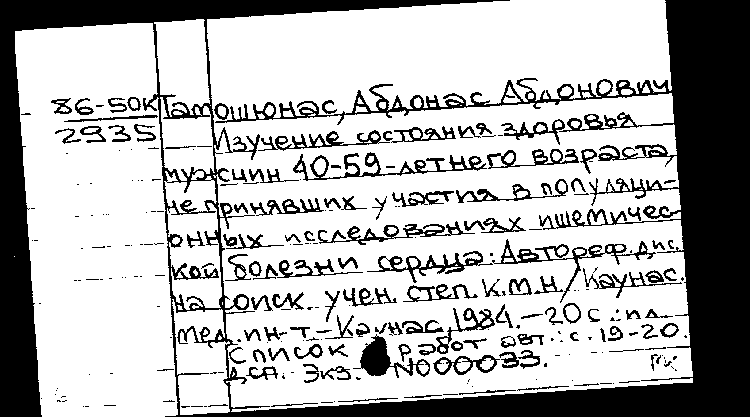 86-50К Тамошюнас, Абдонас Абдонович
2935 Изучение состояния здоровья
мужчин 40-59-летнего возраста,
не принявших участия в популяци-
онных исследованиях ишемичес-
кой болезни сердца: Автореф. дис.
на соиск. учен. степ. к.м.н / Каунас.
мед. ин-т - Каунас, 1984. - 20 с.: ил
Список работ авт.: с. 19-20.
ДСП. Экз. N000033.